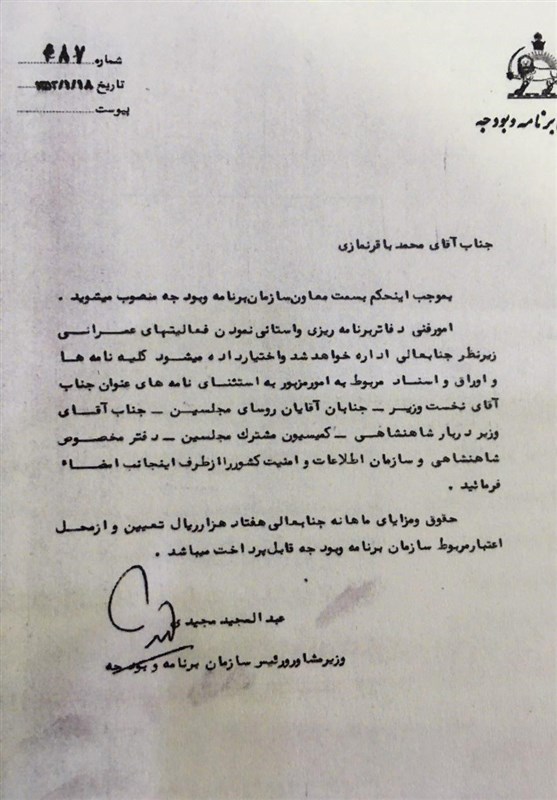 برنامه و بودجه
شماره ۴۸۷
تاریخ ۱۳۵۲/۱/۱۸
پیوست
جناب آقای محمد باقر نمازی
بموجب اینحکم بسمت معاون سازمان برنامه و بودجه منصوب میشوید .
امور فنی دفاتر برنامه ریزی و استانی نمودن فعالیتهای عمرانی
زیر نظر جنابعالی اداره خواهد شد و اختیار داده میشود کلیه نامه ها
و اوراق و اسناد مربوط به امور مزبور به استثنای نامه های عنوان جناب
آقای نخست وزیر ــ جنابان آقایان روسای مجلسین ــ جناب آقای
وزیر دربار شاهنشاهی ــ کمیسیون مشترک مجلسین ــ دفتر مخصوص
شاهنشاهی و سازمان اطلاعات و امنیت کشور را از طرف اینجانب امضاء
فرمائید .
حقوق و مزایای ماهانه جنابعالی هفتاد هزار ریال تعیین و از محل
اعتبار مربوط سازمان برنامه و بودجه قابل پرداخت میباشد .
عبدالمجید مجیدی
وزیر مشاور و رئیس سازمان برنامه و بودجه